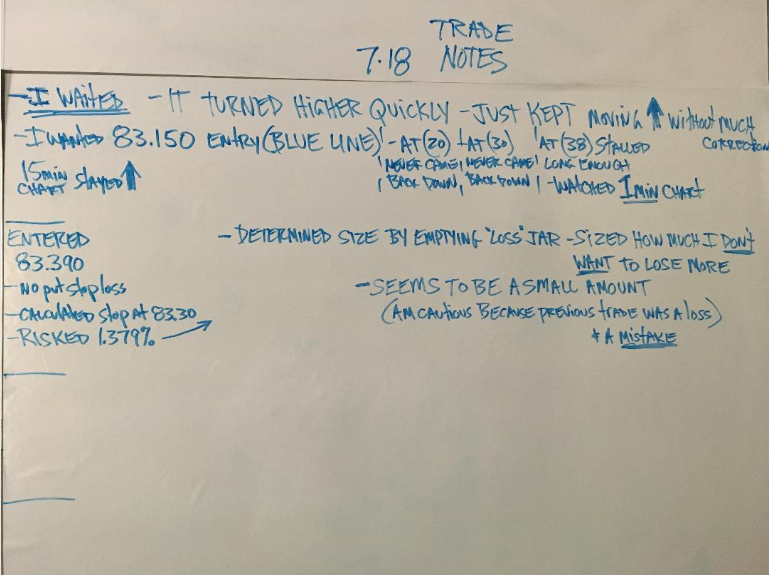 TRADE
7.18 NOTES
- I WAITED - IT TURNED HIGHER QUICKLY - JUST KEPT MOVING ↑ WITHOUT MUCH CORRECTION
- I WANTED 83.150 ENTRY (BLUE LINE) - AT (20) - AT (30) 'AT (38) STALLED
'NEVER CAME' NEVER CAME' LONG ENOUGH
15 min CHART STAYED ↑
BACK DOWN, BACK DOWN - WATCHED 1 MIN CHART
ENTERED
83.390
- NO put stop loss
- CALCULATED stop At 83.30
- RISKED 1.379% →
- DETERMINED SIZE BY EMPTYING "LOSS" JAR - SIZED HOW MUCH I DON'T
WANT TO LOSE MORE
- SEEMS TO BE A SMALL AMOUNT
(AM CAUTIOUS BECAUSE PREVIOUS TRADE WAS A LOSS)
+ A MISTAKE